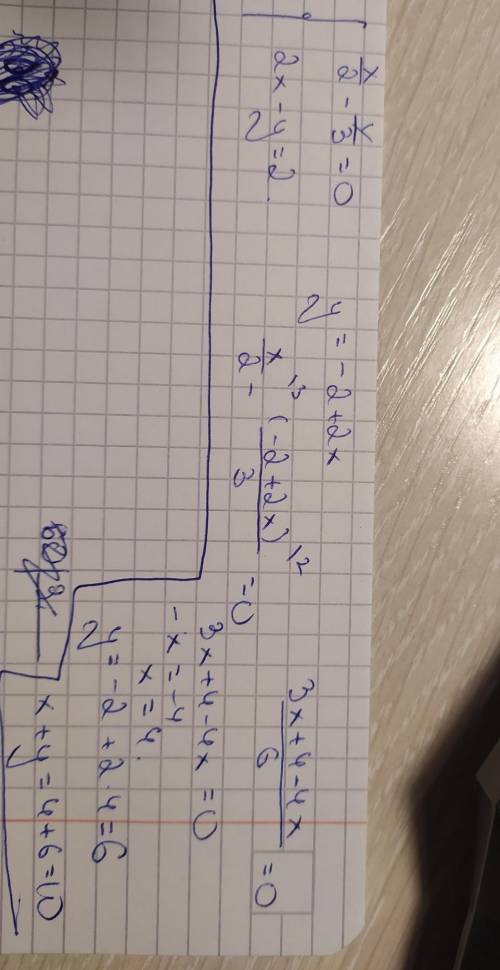 x/2 - y/3 = 0
2x - y = 2.
y = -2 + 2x
x/2 ^13 - (-2 + 2x)/3 ^12 = 0
(3x + 4 - 4x)/6 = 0
3x + 4 - 4x = 0
-x = -4
x = 4.
y = -2 + 2 · 4 = 6
x + y = 4 + 6 = 10